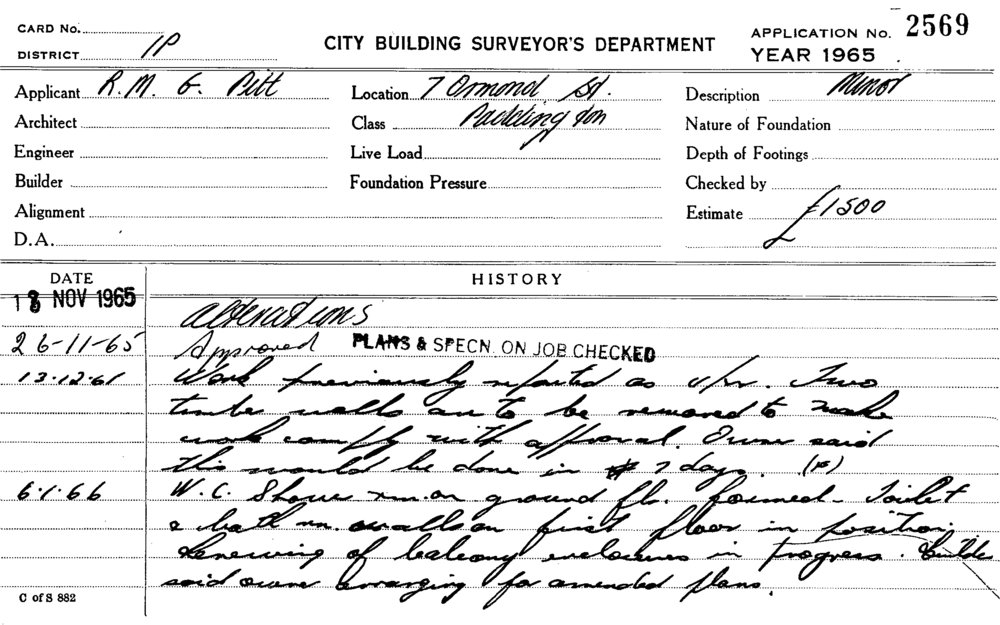 CARD No.
DISTRICT 1P
CITY BUILDING SURVEYOR'S DEPARTMENT
APPLICATION No. 2569
YEAR 1965
Applicant R. M. G. Pitt
Location 7 Ormond St.
Description Minor
Architect
Class Paddington
Nature of Foundation
Engineer
Live Load
Depth of Footings
Builder
Foundation Pressure
Checked by
Alignment
Estimate £1500
D.A.
£
DATE
HISTORY
18 NOV 1965
alterations
26-11-65 Approved PLANS & SPECN. ON JOB CHECKED
13.12.65 Work previously reported as u/w. Two
timber walls are to be removed to make
work comply with approval. Owner said
this would be done in 7 days.
6.1.66 W.C. Shower rm. on ground flr. formed. Toilet
& bath rm. walls on first floor in position.
Renewing of balcony enclosures in progress. Builder
said owner arranging for amended plans.
C of S 882